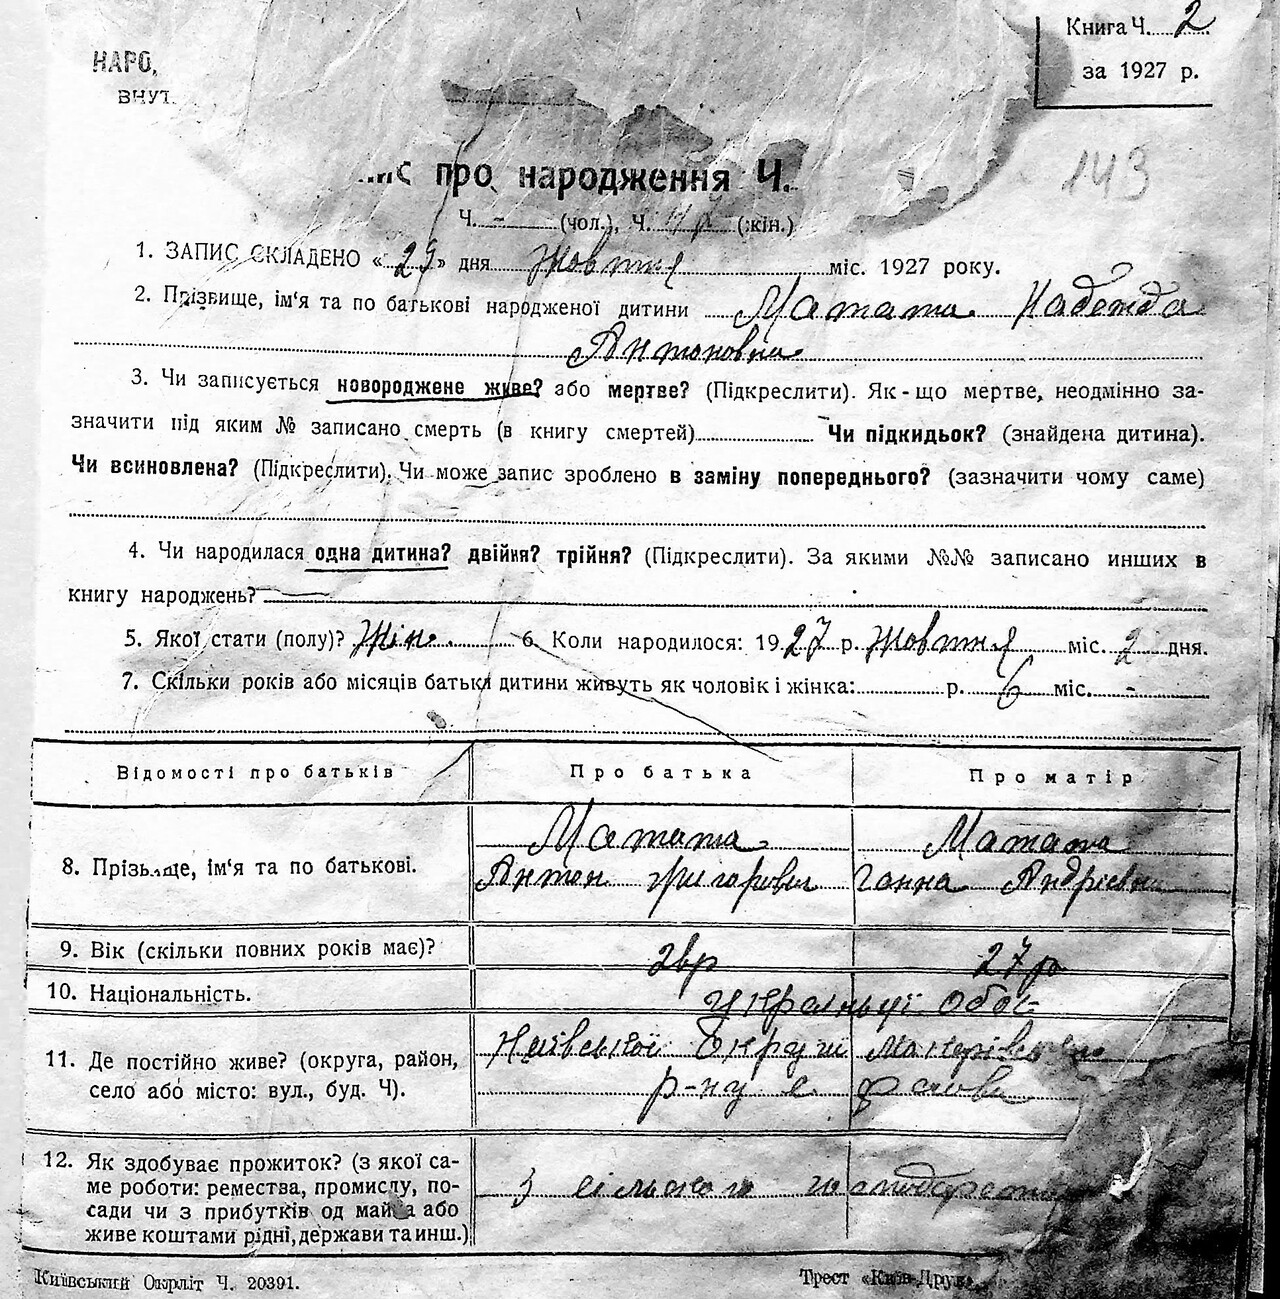 Книга Ч. 2
за 1927 р.
НАРО,
ВНУТ.
143
ис про народження Ч.
Ч. - (чол.), Ч. (жін.)
1. ЗАПИС СКЛАДЕНО «29» дня Жовтня міс. 1927 року.
2. Прізвище, ім'я та по батькові народженої дитини Матата Надежда
Антоновна
3. Чи записується новороджене живе? або мертве? (Підкреслити). Як-що мертве, неодмінно за-
значити під яким № записано смерть (в книгу смертей) Чи підкидьок? (знайдена дитина).
Чи всиновлена? (Підкреслити). Чи може запис зроблено в заміну попереднього? (зазначити чому саме)
4. Чи народилася одна дитина? двійня? трійня? (Підкреслити). За якими №№ записано инших в
книгу народжень?
5. Якої стати (полу)? Жін. 6. Коли народилося: 1927 р. Жовтня міс. 2 дня.
7. Скільки років або місяців батьки дитини живуть як чоловік і жінка: р. 6 міс. -
Відомості про батьків Про батька Про матір
8. Прізвище, ім'я та по батькові. Матата Матата
Антон Григорович Ганна Андрієвна
9. Вік (скільки повних років має)? 27р
10. Національність. Українці обоє
11. Де постійно живе? (округа, район, Київської Округи Макарівського
село або місто: вул., буд. Ч). р-ну с
12. Як здобуває прожиток? (з якої са- з сільського господарства
ме роботи: ремества, промислу, по-
сади чи з прибутків од майна або
живе коштами рідні, держави та инш.)
Київський Окрліт Ч. 20391. Трест «Київ-Друк»